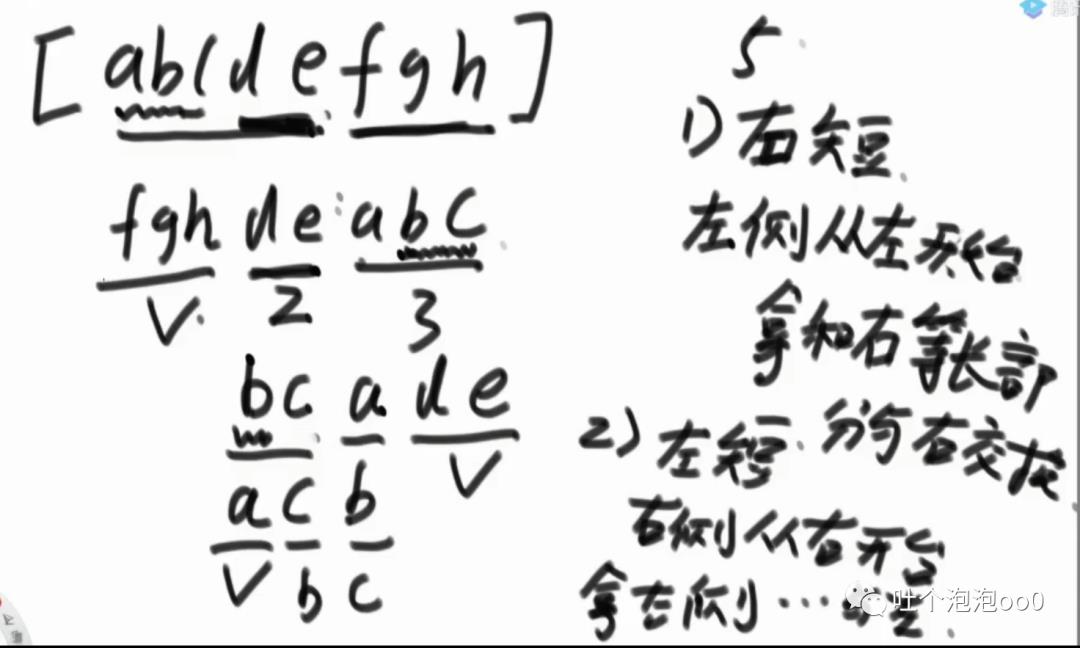 [ abcdefgh ]
fgh de abc
2 3
bc a de
a c b
b c
5
1) 右短
左侧从左开始
拿和右等长部
分与右交换
2) 左短
右侧从右开始
拿左侧…
吐个泡泡oo0